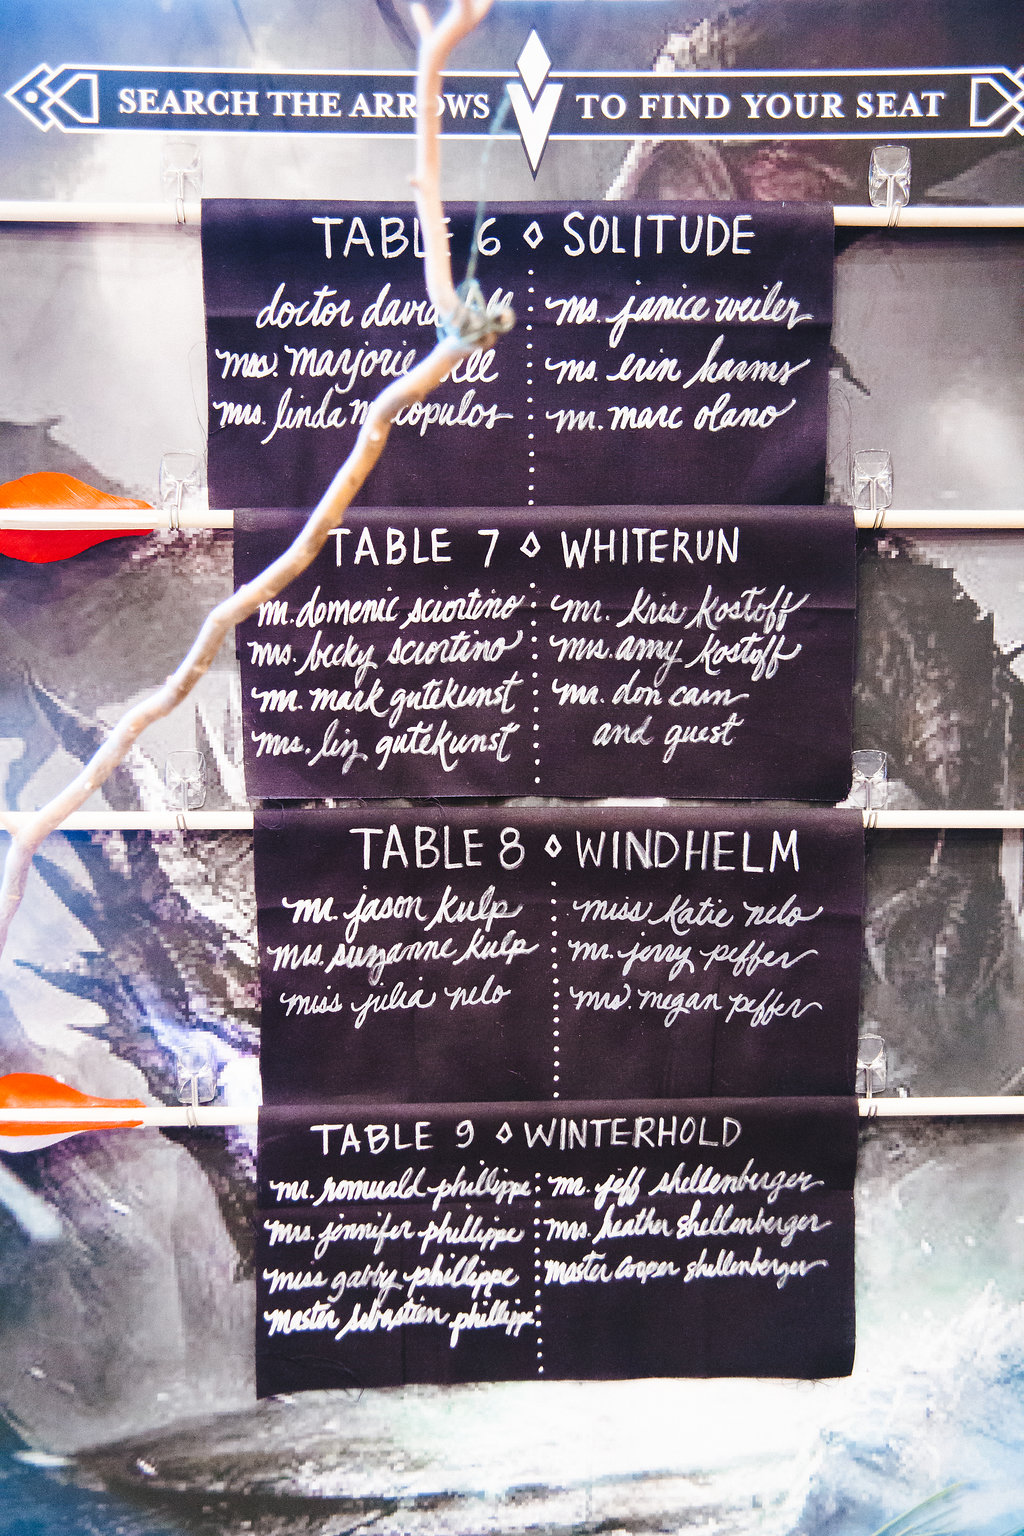 SEARCH THE ARROWS TO FIND YOUR SEAT
TABLE 6 ◊ SOLITUDE
doctor david
mrs. marjorie
mrs. linda
ms. janice weiler
ms. erin harms
mr. marc olano
TABLE 7 ◊ WHITERUN
mr. domenic sciortino
mrs. becky sciortino
mr. mark gutekunst
mrs. liz gutekunst
mr. kris kostoff
mrs. amy kostoff
mr. don cam
and guest
TABLE 8 ◊ WINDHELM
mr. jason kulp
mrs. suzanne kulp
miss julia nelo
miss katie nelo
mr. jerry peffer
mrs. megan peffer
TABLE 9 ◊ WINTERHOLD
mr. romuald phillippe
mrs. jennifer phillippe
miss gabby phillippe
master sebastien phillippe
mr. jeff shellenberger
mrs. heather shellenberger
master cooper shellenberger